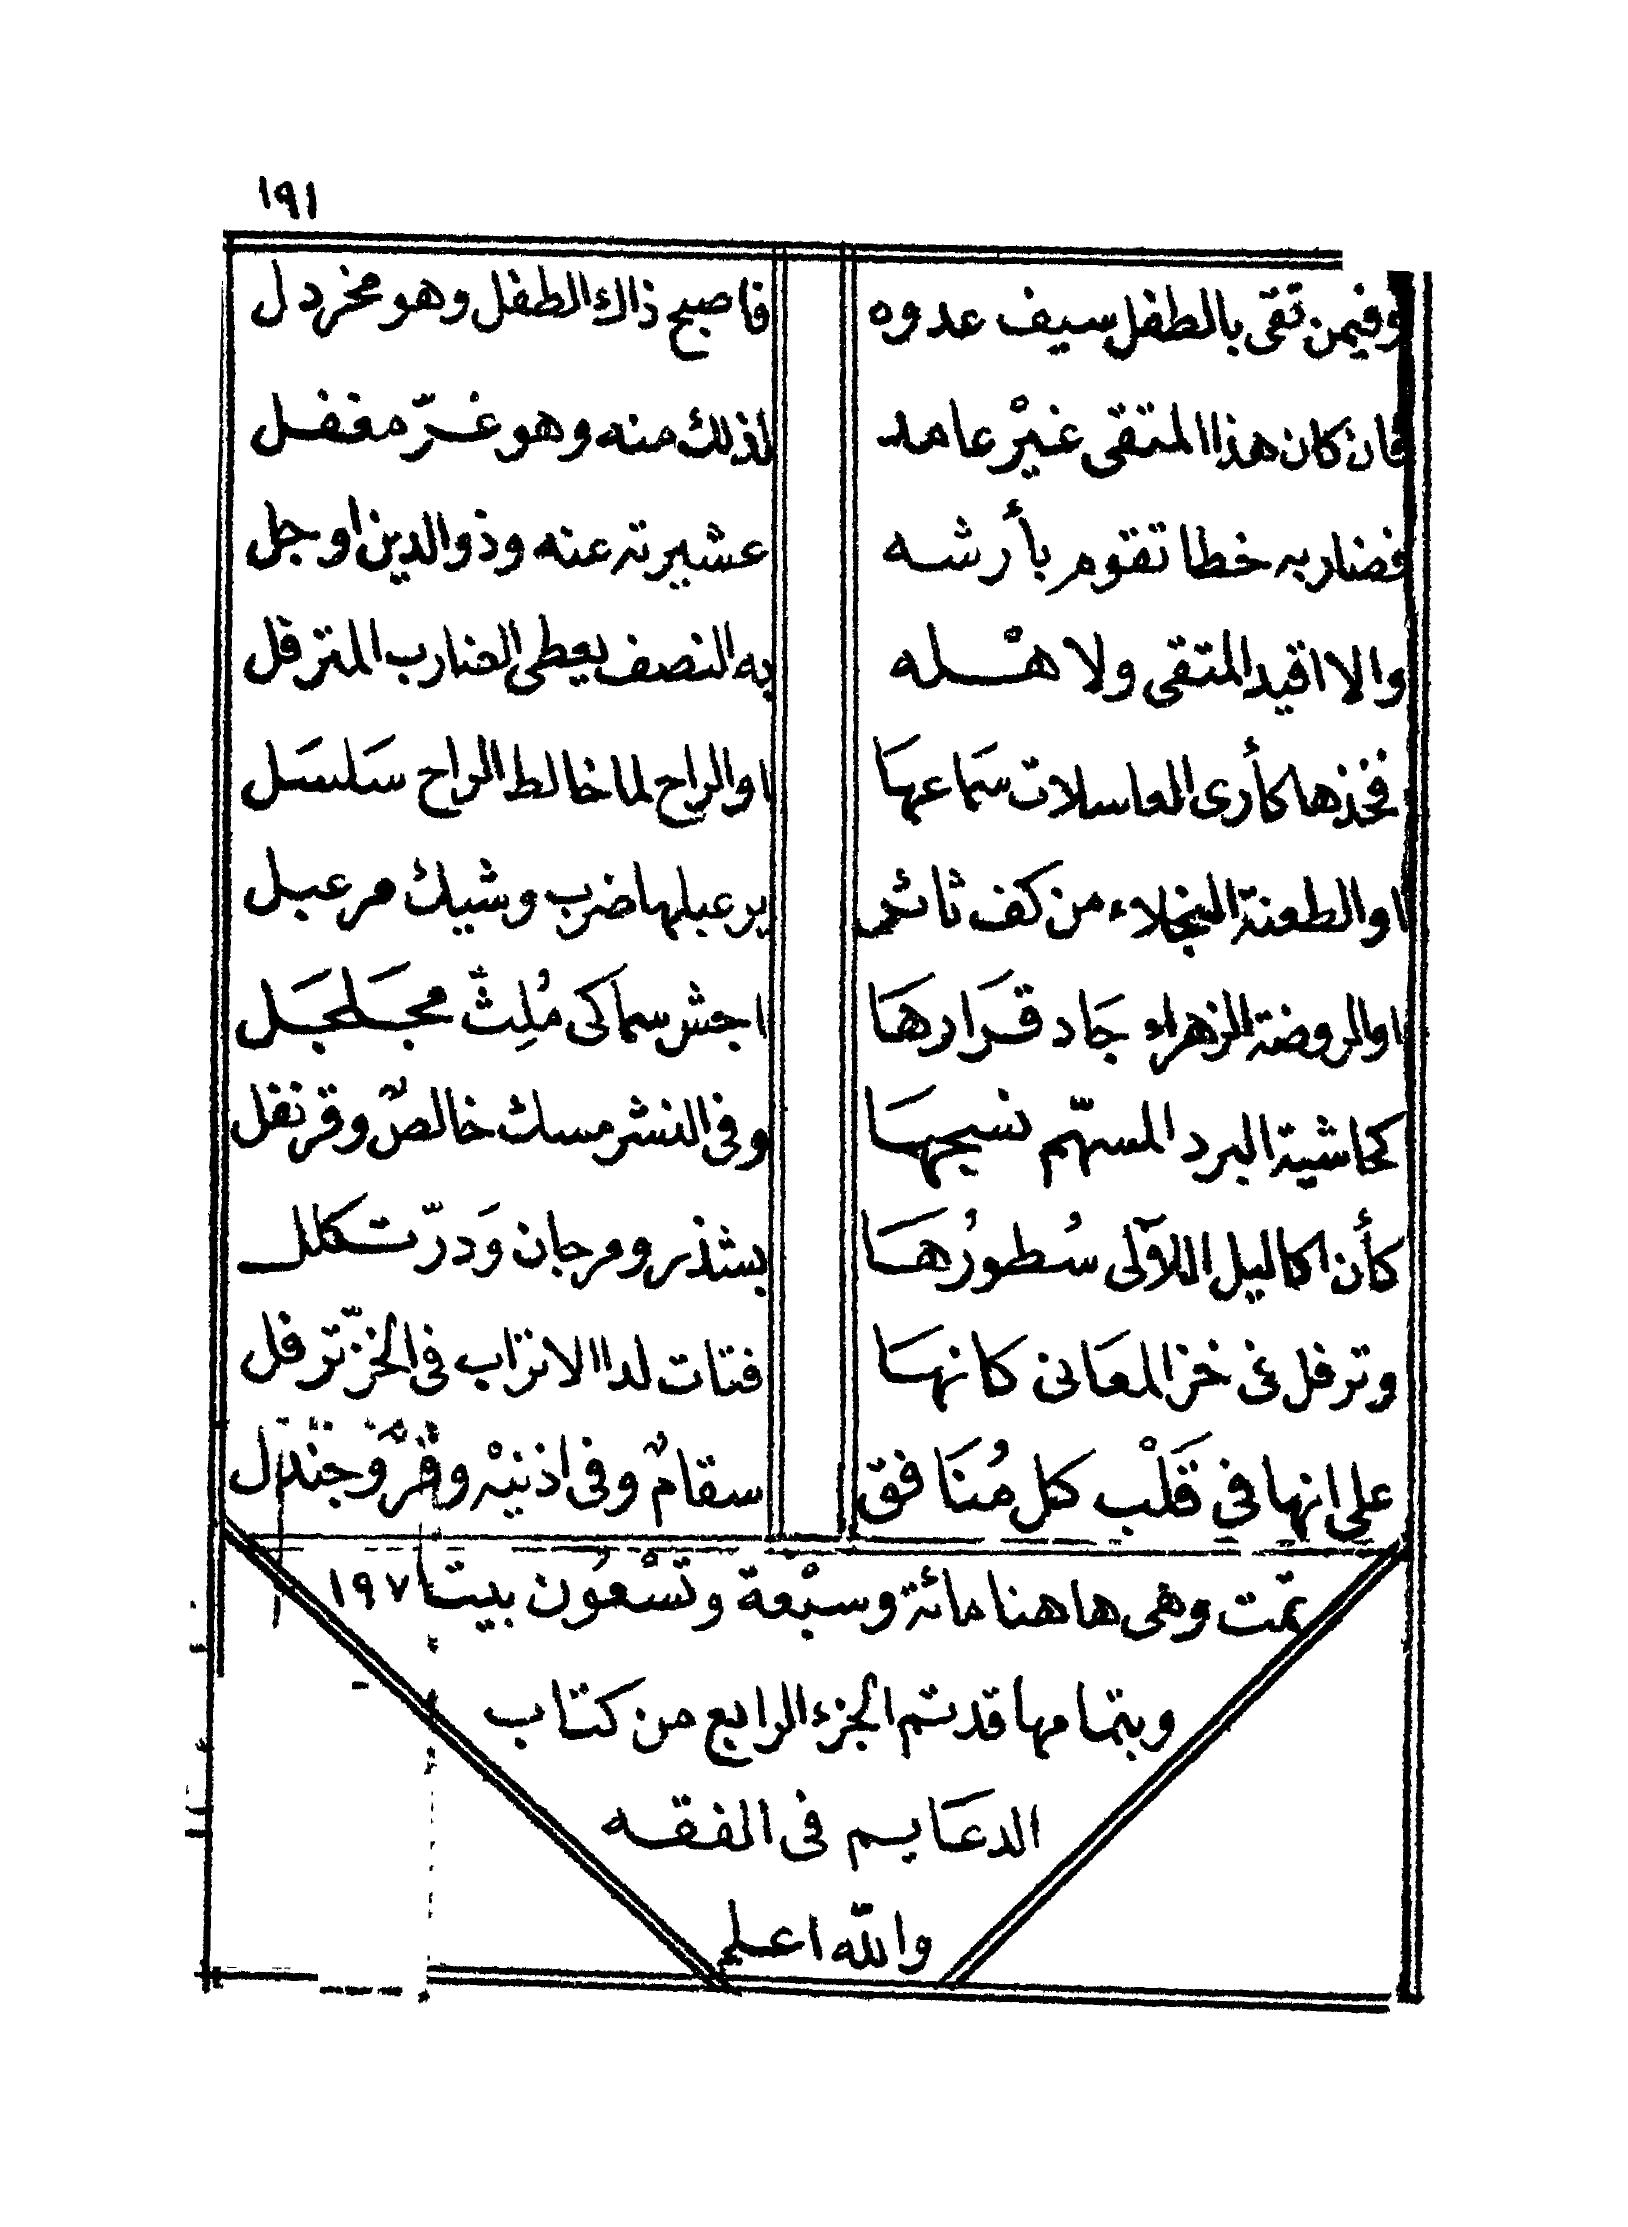 ١٩١
وفيمن تقى بالطفل سيف عدوه فاصبح ذاك الطفل وهو مخردل
فان كان هذا المتقى غيْر عامد لذلك منه وهو غرّ مغفل
فضاربه خطا تقوم بأرشه عشيرته عنه وذو الدين اوجل
والا اقيد المتقى ولاهْله به النصف يعطى الضارب المترفل
فخذها كأرى العاسلات سَماعهَا او الراح لما خالط الراح سَلسَل
او الطعنة النجلاء من كف ثائر يرعبلها ضرب وشيك مرعبل
او الروضة الزهراء جَاد قَرارهَا اجش سماكى مُلِثّ مجَلجَل
كحاشية البرد المسهّم نسيجهَا وفى النشر مسك خالصٌ وقرنفل
كأن اكاليل اللآلى سُطورُهَا بشذر ومرجان وَدرّ تكلل
وترفل غى خز المعَانى كانهَا فتات لدا الاتراب فى الخزّ ترفل
على انها في قَلْب كل مُنَافق سقامٌ وفى اذنيْه وقْرٌ وجندل
تمت وهى هاهنا مائة وسبْعة وتسْعُون بيتا ١٩٧
وبتمامها قد تم الجزء الرابع من كتاب
الدعَايم فى الفقه
والله اعلم